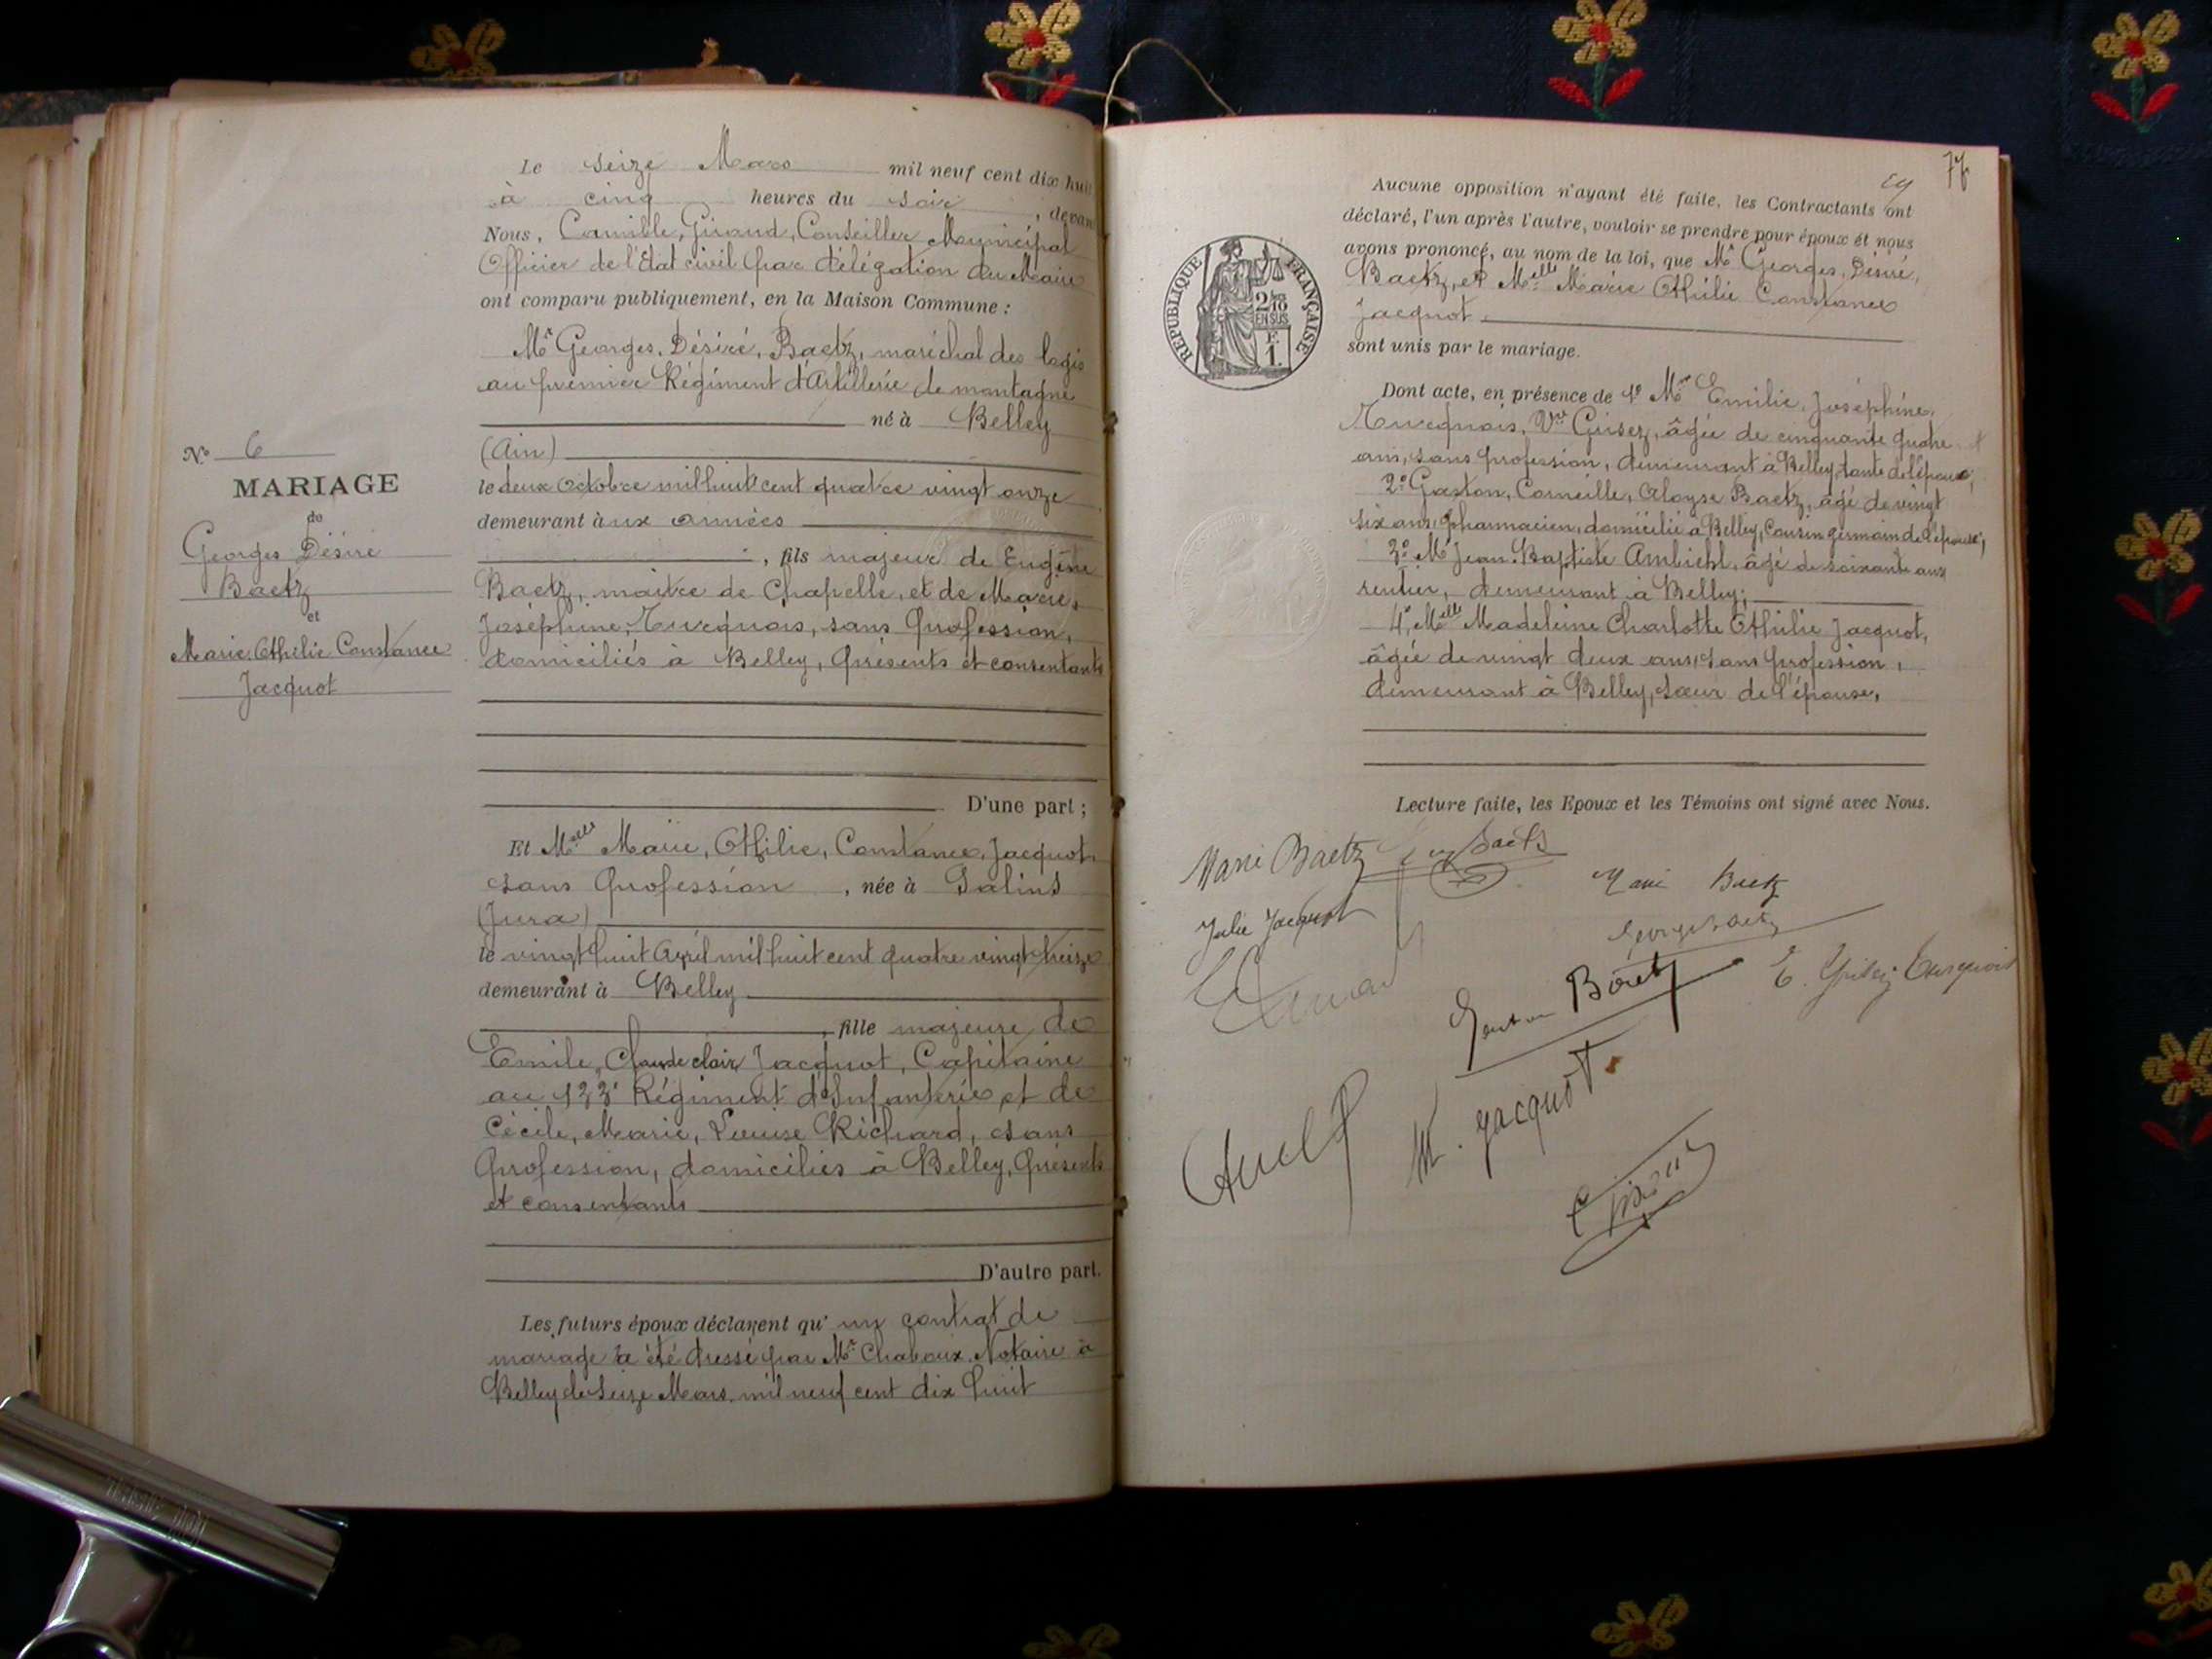 Le seize Mars mil neuf cent dix huit
à cinq heures du soir, devant
Nous, Camille, Giraud, Conseiller Municipal
Officier de l'Etat civil par délégation du Maire
ont comparu publiquement, en la Maison Commune :
Mr Georges, Désiré, Baetz, maréchal des logis
au premier Régiment d'Artillerie de montagne
né à Belley
(Ain)
le deux Octobre mil huit cent quatre vingt onze
demeurant à ux armées
, fils majeur de Eugène
Baetz, maitre de Chapelle, et de Marie,
Joséphine, Turquois, sans profession,
domiciliés à Belley, présents et consentants
D'une part ;
No 6
MARIAGE
de
Georges Désiré
Baetz
et
Marie Othilie Constance
Jacquot
Et Melle Marie, Othilie, Constance, Jacquot,
sans profession, née à Salins
(Jura)
le vingt huit Avril mil huit cent quatre vingt treize
demeurant à Belley
, fille majeure de
Emile, Claude clair Jacquot, Capitaine
au 133e Régiment d'Infanterie et de
Cécile, Marie, Louise Richard, sans
profession, domiciliés à Belley, présents
et consentants
D'autre part.
Les futurs époux déclarent qu' un contrat de
mariage a été dressé par Me Chaboux Notaire à
Belley le seize Mars mil neuf cent dix huit
77
Aucune opposition n'ayant été faite, les Contractants ont
déclaré, l'un après l'autre, vouloir se prendre pour époux et nous
avons prononcé, au nom de la loi, que Mr Georges, Désiré,
Baetz, et Melle Marie Othilie Constance
Jacquot
sont unis par le mariage.
REPUBLIQUE FRANÇAISE
2/10
EN SUS
F.
1.
Dont acte, en présence de 1o Me Emilie, Joséphine,
Turquois, Vve Guisez, âgée de cinquante quatre
ans, sans profession, demeurant à Belley, tante de l'époux;
2o Gaston, Corneille, Aloyse Baetz, âgé de vingt
six ans, pharmacien, domicilié à Belley, Cousin germain de l'époux;
3o Mr Jean-Baptiste Ambiehl, âgé de soixante ans
rentier, demeurant à Belley;
4o Melle Madeleine Charlotte Othilie Jacquot,
âgée de vingt deux ans, sans profession,
demeurant à Belley, soeur de l'épouse,
Lecture faite, les Epoux et les Témoins ont signé avec Nous.
Marie Baetz Baetz
Marie Baetz
Julie Jacquot
Georges Baetz
Gaston Baetz
M. Jacquot